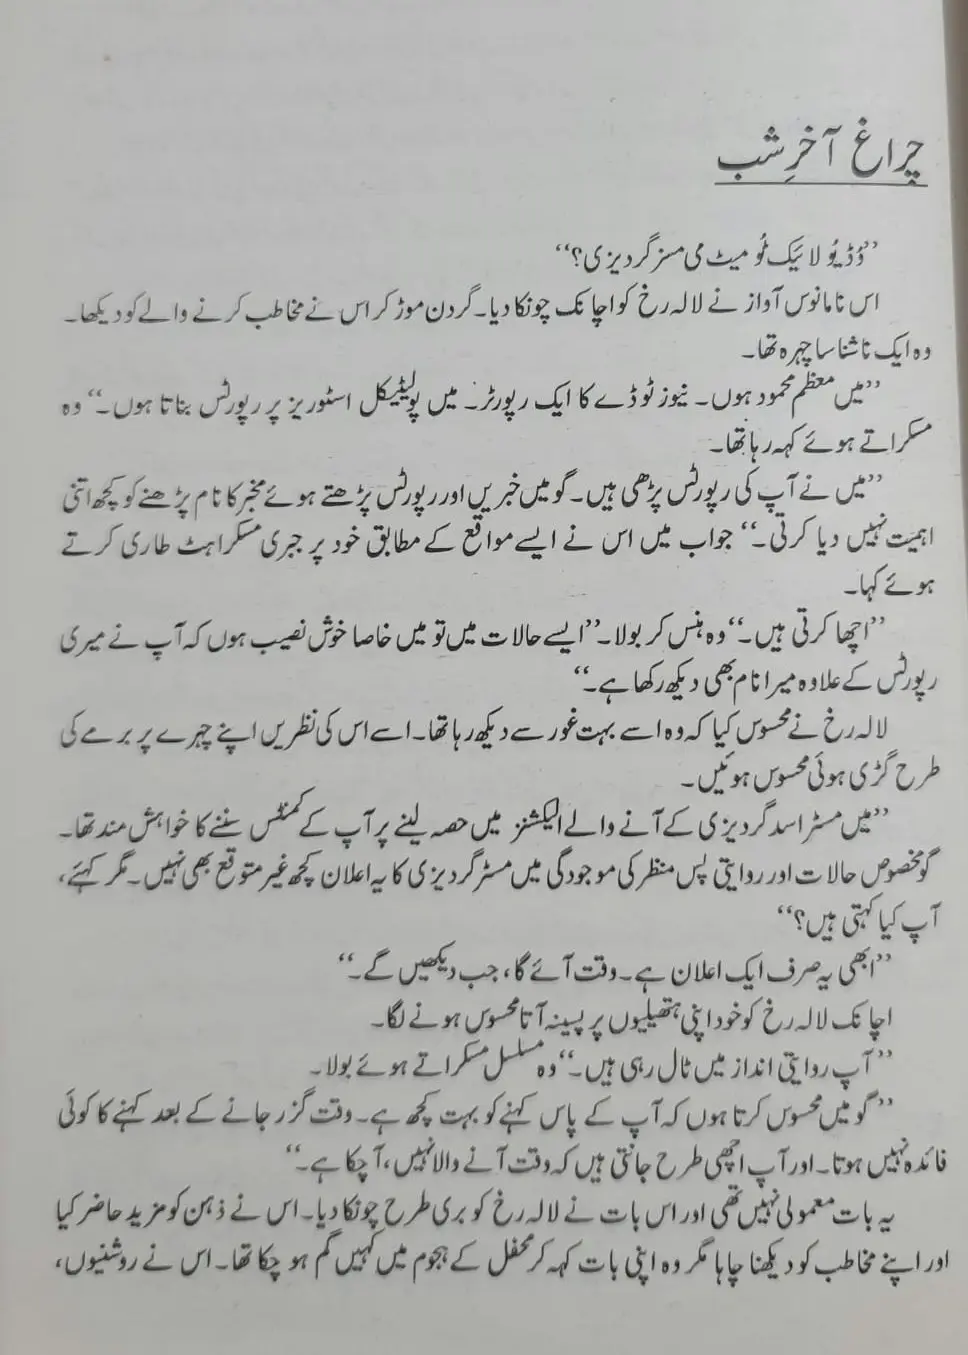 چراغِ آخرِ شب
”وُڈ یُو لائیک ٹُو میٹ می مسز گردیزی؟“
اس نامانوس آواز نے لالہ رخ کو اچانک چونکا دیا۔ گردن موڑ کر اس نے مخاطب کرنے والے کو دیکھا۔
وہ ایک ناشناسا چہرہ تھا۔
”میں معظم محمود ہوں۔ نیوز ٹوڈے کا ایک رپورٹر۔ میں پولیٹیکل اسٹوریز پر رپورٹس بناتا ہوں۔“ وہ
مسکراتے ہوئے کہہ رہا تھا۔
”میں نے آپ کی رپورٹس پڑھی ہیں۔ گو میں خبریں اور رپورٹس پڑھتے ہوئے مخبر کا نام پڑھنے کو کچھ اتنی
اہمیت نہیں دیا کرتی۔“ جواب میں اس نے ایسے مواقع کے مطابق خود پر جبری مسکراہٹ طاری کرتے
ہوئے کہا۔
”اچھا کرتی ہیں۔“ وہ ہنس کر بولا۔ ”ایسے حالات میں تو میں خاصا خوش نصیب ہوں کہ آپ نے میری
رپورٹس کے علاوہ میرا نام بھی دیکھ رکھا ہے۔“
لالہ رخ نے محسوس کیا کہ وہ اسے بہت غور سے دیکھ رہا تھا۔ اسے اس کی نظریں اپنے چہرے پر برمے کی
طرح گڑی ہوئی محسوس ہوئیں۔
”میں مسٹر اسد گردیزی کے آنے والے الیکشنز میں حصہ لینے پر آپ کے کمنٹس سننے کا خواہش مند تھا۔
گو مخصوص حالات اور روایتی پس منظر کی موجودگی میں مسٹر گردیزی کا یہ اعلان کچھ غیر متوقع بھی نہیں۔ مگر کہئے،
آپ کیا کہتی ہیں؟“
”ابھی یہ صرف ایک اعلان ہے۔ وقت آئے گا، جب دیکھیں گے۔“
اچانک لالہ رخ کو خود اپنی ہتھیلیوں پر پسینہ آتا محسوس ہونے لگا۔
”آپ روایتی انداز میں ٹال رہی ہیں۔“ وہ مسلسل مسکراتے ہوئے بولا۔
”گو میں محسوس کرتا ہوں کہ آپ کے پاس کہنے کو بہت کچھ ہے۔ وقت گزر جانے کے بعد کہنے کا کوئی
فائدہ نہیں ہوتا۔ اور آپ اچھی طرح جانتی ہیں کہ وقت آنے والا نہیں، آ چکا ہے۔“
یہ بات معمولی نہیں تھی اور اس بات نے لالہ رخ کو بری طرح چونکا دیا۔ اس نے ذہن کو مزید حاضر کیا
اور اپنے مخاطب کو دیکھنا چاہا مگر وہ اپنی بات کہہ کر محفل کے ہجوم میں کہیں گم ہو چکا تھا۔ اس نے روشنیوں،